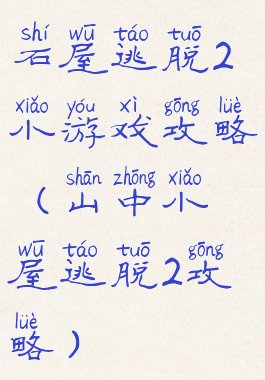 shí wū táo tuō
石屋逃脱2
xiǎo yóu xì gōng lüè
小游戏攻略
shān zhōng xiǎo
(山中小
wū táo tuō gōng
屋逃脱2攻
lüè
略)